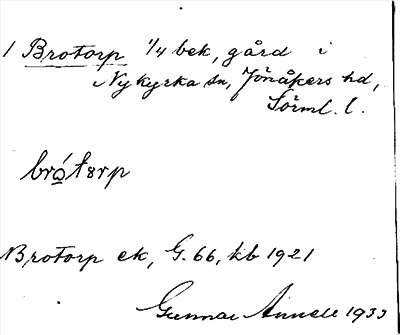 1 Brotorp 1/4 bek, gård i
Nykyrka sn, Jönåkers hd,
Sörml. l.
brót8rp
Brotorp ek, G. 66, kb 1921
Gunnar Annell 1933